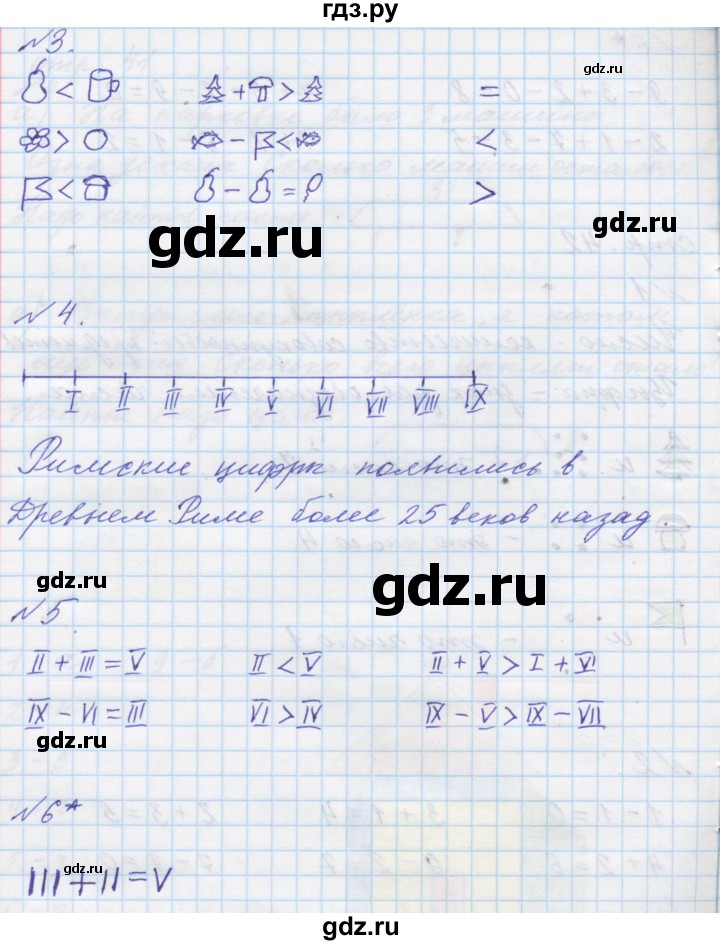 гдз.ру
№3.
< + > =
gdz.ru
> − < <
< − = >
gdz.ru
gdz.ru
№4.
I II III IV V VI VII VIII IX
Римские цифры появились в
Древнем Риме более 25 веков назад.
gdz.ru
gdz.ru
№5.
II + III = V II < V II + V > I + VI
IX − VI = III VI > IV IX − V > IX − VII
gdz.ru
№6*
gdz.ru
III + II = V
gdz.ru